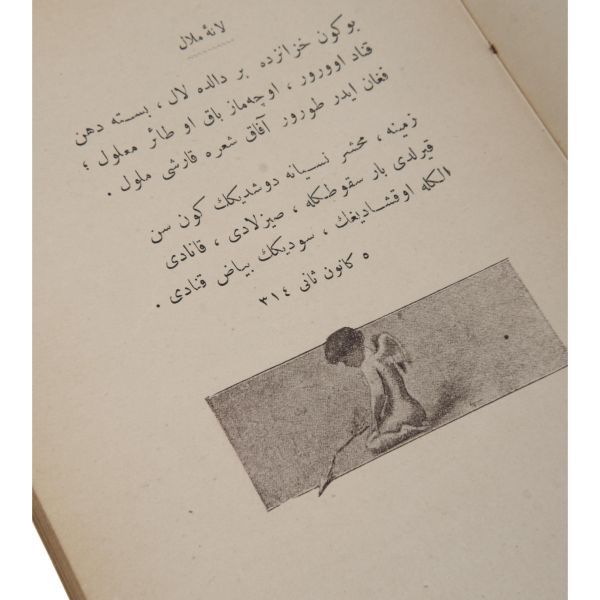 لانهٔ ملال
بوكون خزانزده بر دالده لال ، بسته دهن
قناد اوورور ، اوچه‌ماز باق او طائر معلول ؛
فغان ايدر طورور آفاق شعره قارشى ملول .
زمينه ، محشر نسيانه دوشديكك كون سن
قيرلدى بار سقوطكله ، صيزلادى ، قانادى
الكله اوقشاديغك ، سوديكك بياض قنادى .
٥ كانون ثانى ٣١٤